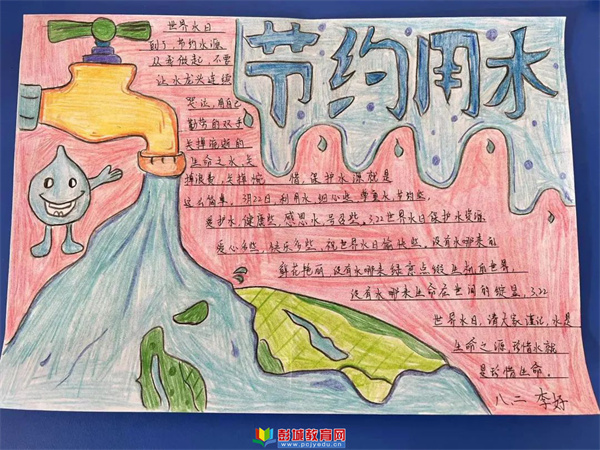 节约用水
世界水日
到了,节约水源
从我做起,不要
让水龙头连续
哭泣,用自己
勤劳的双手
关掉流逝的
生命之水,关
掉浪费,关掉惋
惜,保护水源就是
这么简单。3月22日,利用水,细心些,尊重水,节约些,
爱护水,健康些,感恩水,多些,3.22世界水日保护水资源,
爱心多些,快乐多些,祝世界水日愉快些,没有水哪来的
鲜花艳丽,没有水哪来绿意点缀
没有水哪来生命在世间的绽显,3.22
世界水日,请大家谨记,水是
生命之源,珍惜水就
是珍惜生命。
八二 李妤
彭城教育网
www.pcjyedu.cn